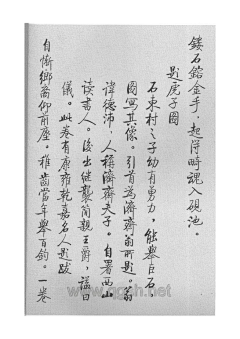 鏤石鎔金手，起得時魂入硯池。
題虎子圖
石東村之子幼有勇力，能舉巨石，
圖寫其像。引首為濟齋翁所題。翁
諱德沛，人稱濟齋夫子。自署西山
讀書人。後出繼襲簡親王爵，謚曰
儀。此卷有康雍乾嘉名人題跋
自慚鄉裔仰前塵。稚齒當年舉百鈞。一卷